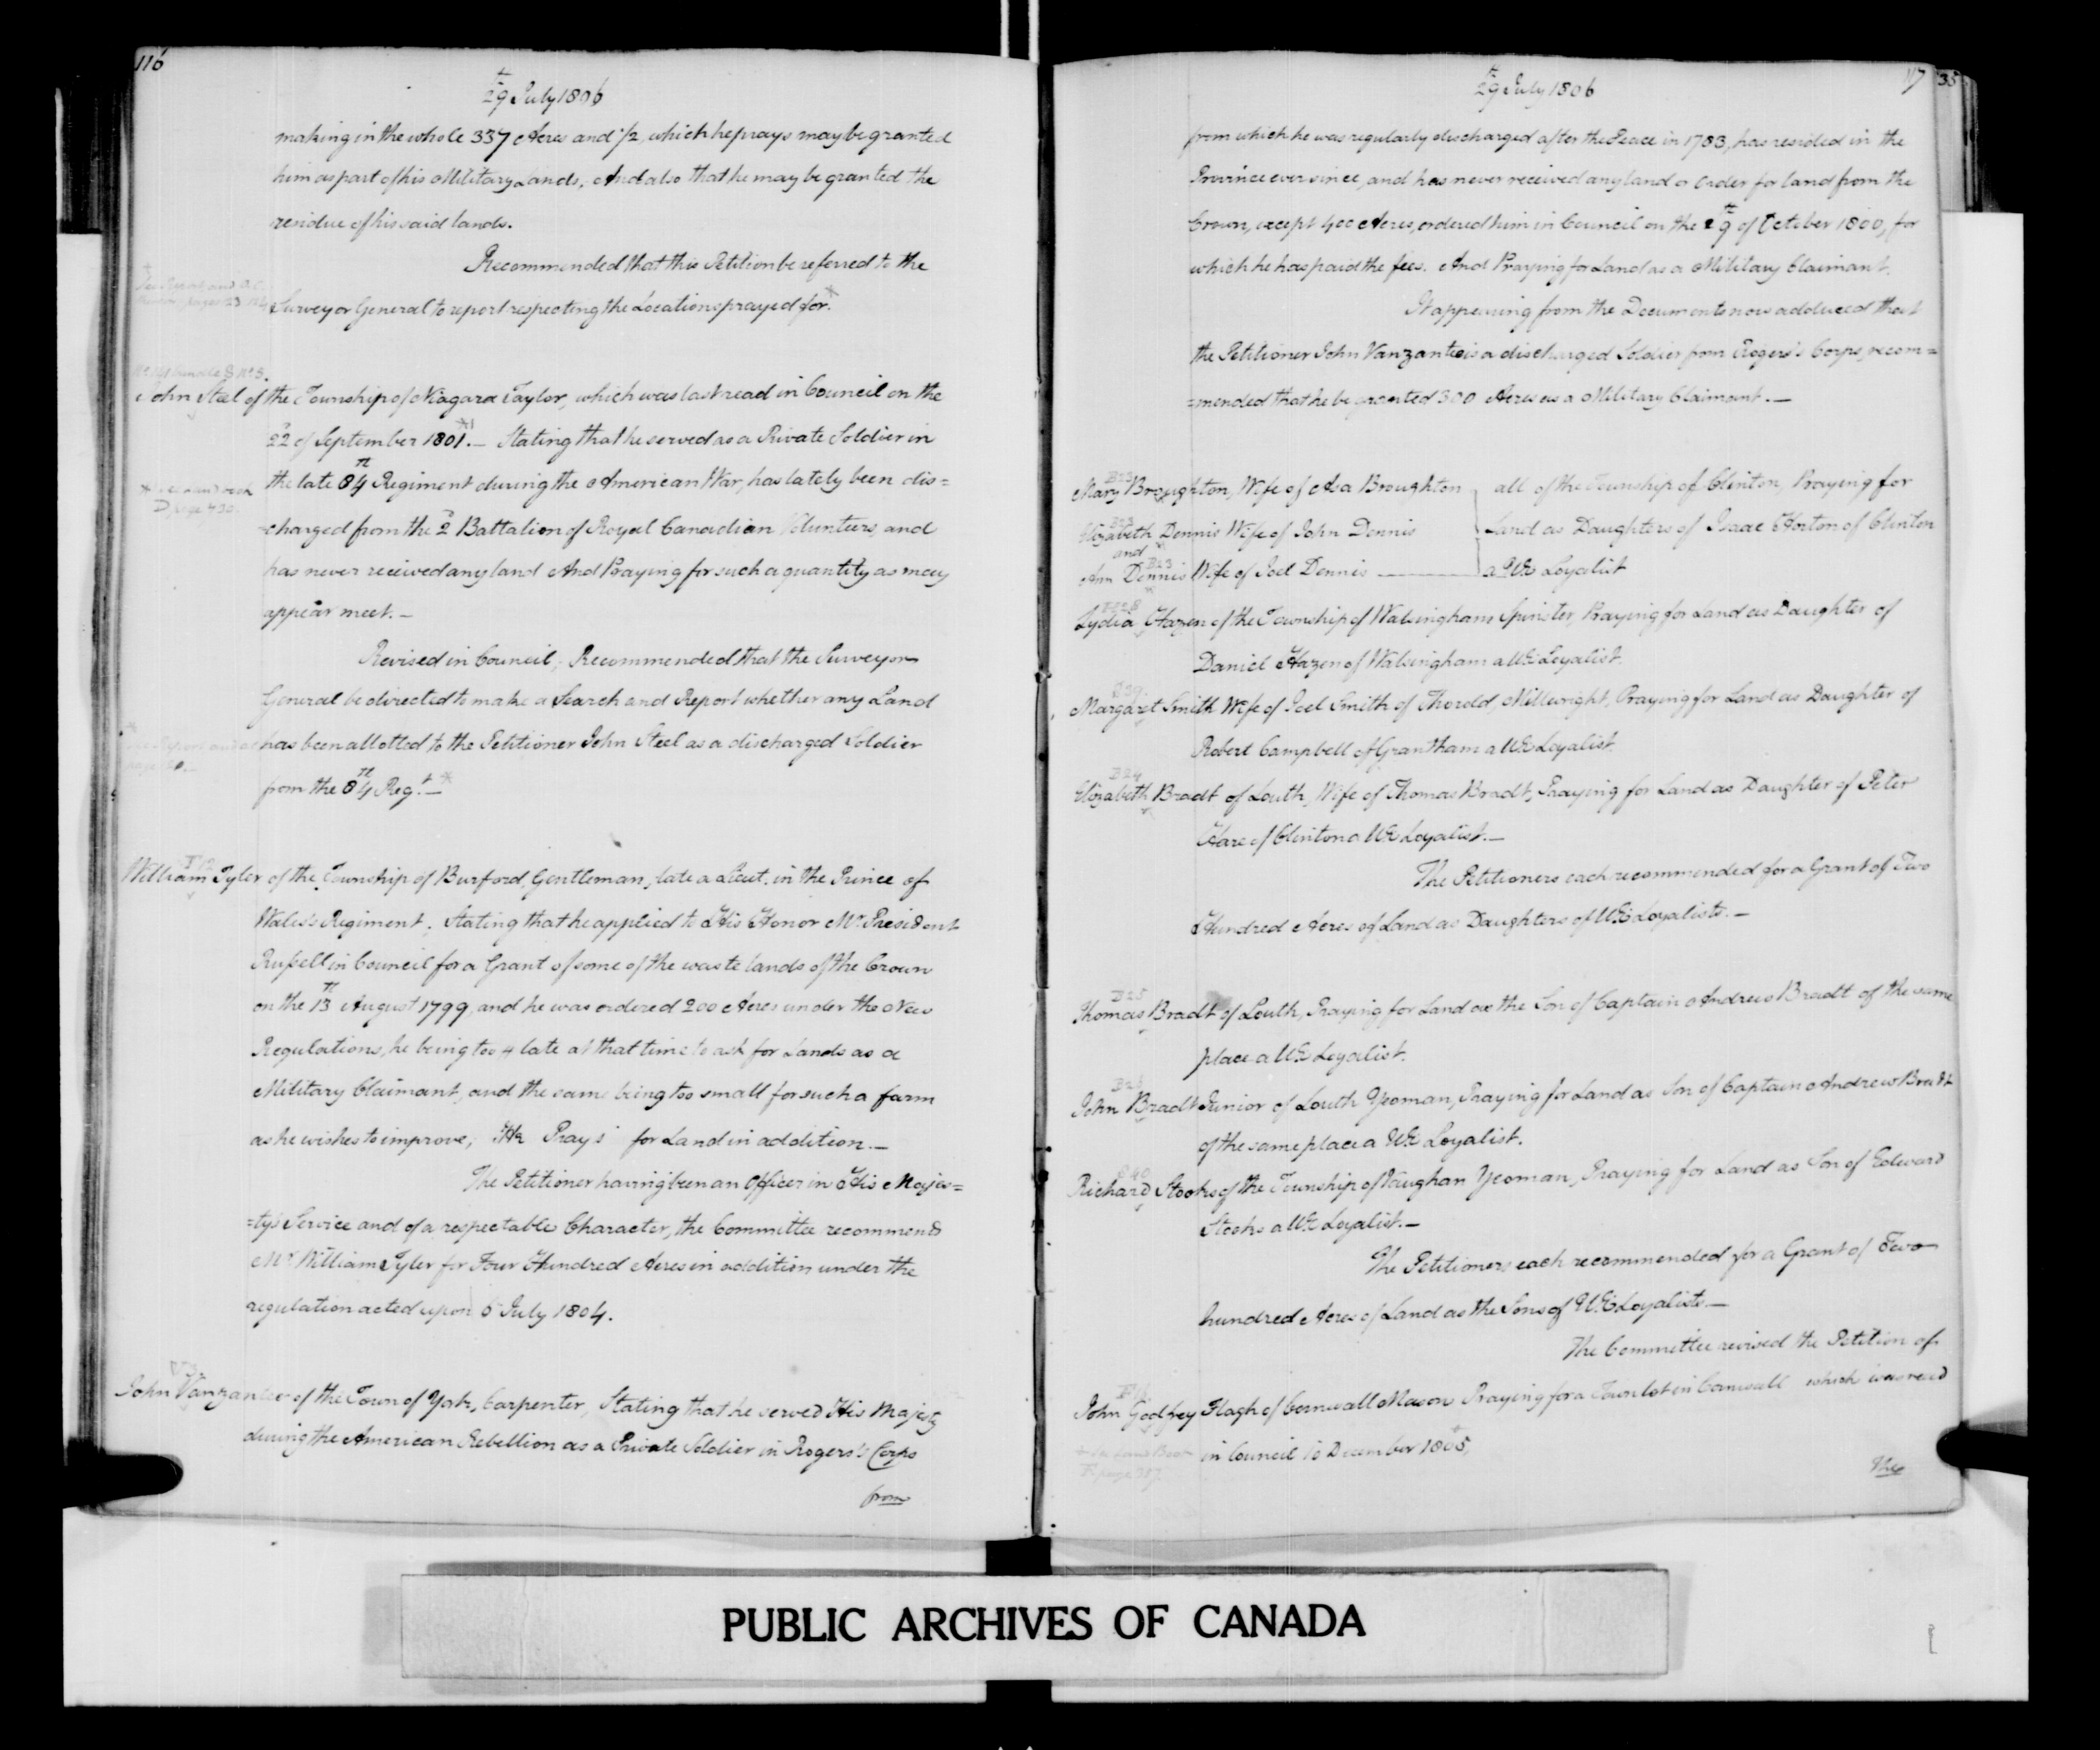 116
29th July 1806
making in the whole 337 Acres and 1/2 which he prays may be granted
him as part of his Military Lands, And also that he may be granted the
residue of his said lands.
Recommended that this Petition be referred to the
Surveyor General to report respecting the Locations prayed for. *
John Steel of the Township of Niagara Taylor, which was last read in Council on the
22d of September 1801. — Stating that he served as a Private Soldier in
the late 84th Regiment during the American War, has lately been dis=
=charged from the 2d Battalion of Royal Canadian Volunteers, and
has never received any land And Praying for such a quantity as may
appear meet. —
Revised in Council; Recommended that the Surveyor
General be directed to make a Search and Report whether any Land
has been allotted to the Petitioner John Steel as a discharged Soldier
from the 84th Regt. — *
William Tyler of the Township of Burford, Gentleman, late a Lieut. in the Prince of
Wales's Regiment; Stating that he applied to His Honor Mr. President
Russell in Council for a Grant of some of the waste lands of the Crown
on the 13th August 1799, and he was ordered 200 Acres under the New
Regulations, he being too late at that time to ask for Lands as a
Military Claimant, and the same being too small for such a farm
as he wishes to improve; He Prays for Land in addition. —
The Petitioner having been an Officer in His Majes=
=ty's Service and of a respectable Character, the Committee recommend
Mr. William Tyler for Four Hundred Acres in addition under the
regulation acted upon 6 July 1804.
John Vanzantee of the Town of York, Carpenter, Stating that he served His Majesty
during the American Rebellion as a Private Soldier in Rogers's Corps
from
117
35
29th July 1806
from which he was regularly discharged after the Peace in 1783, has resided in the
Province ever since, and has never received any land or Order for land from the
Crown, except 400 Acres, ordered him in Council on the 29th of October 1800, for
which he has paid the fees. And Praying for Land as a Military Claimant.
It appearing from the Documents now adduced that
the Petitioner John Vanzantee is a discharged Soldier from Rogers's Corps, recom=
=mended that he be granted 300 Acres as a Military Claimant. —
Mary Broughton, Wife of Asa Broughton all of the Township of Clinton, Praying for
Elizabeth Dennis Wife of John Dennis Land as Daughters of Isaac Horton of Clinton
and
Ann Dennis Wife of Joel Dennis — a UE Loyalist
Lydia Hazen of the Township of Walsingham Spinster, Praying for Land as Daughter of
Daniel Hazen of Walsingham a UE Loyalist.
Margaret Smith Wife of Joel Smith of Thorold, Millwright, Praying for Land as Daughter of
Robert Campbell of Grantham a UE Loyalist.
B24
Elizabeth Bradt of Louth, Wife of Thomas Bradt, Praying for Land as Daughter of Peter
Hare of Clinton a UE Loyalist. —
The Petitioners each recommended for a Grant of Two
Hundred Acres of Land as Daughters of UE Loyalists. —
B25
Thomas Bradt of Louth, Praying for Land as the Son of Captain Andrew Bradt of the same
place a UE Loyalist.
B26
John Bradt Junior of Louth Yeoman, Praying for Land as Son of Captain Andrew Bradt
of the same place a UE Loyalist.
Richard Stooks of the Township of Vaughan Yeoman, Praying for Land as Son of Edward
Stooks a UE Loyalist. —
The Petitioners each recommended for a Grant of Two
hundred Acres of Land as the Sons of UE Loyalists —
The Committee revised the Petition of
John Godfrey Flagh of Cornwall Mason Praying for a Town lot in Cornwall which was read
in Council 10 December 1805,
The
PUBLIC ARCHIVES OF CANADA